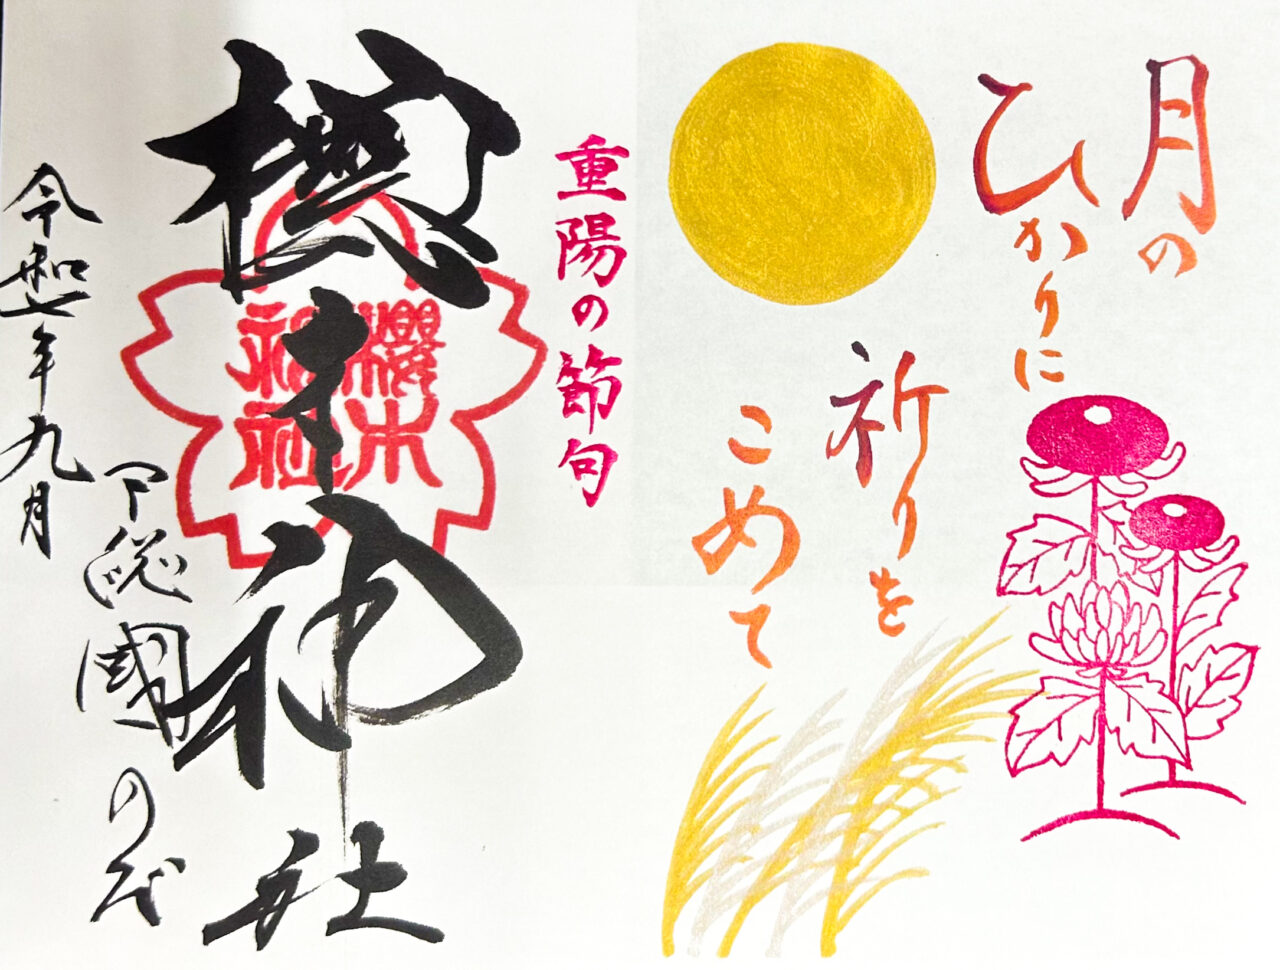 月の
ひかりに
祈りを
こめて
重陽の節句
櫻木神社
櫻木
神社
下総國のだ
令和七年九月